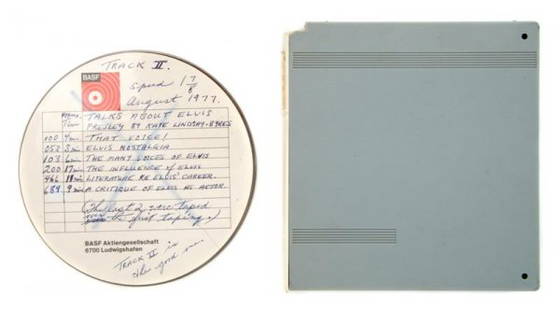 TRACK II.
BASF
speed 1 7/8
August 1977.
TALKS ABOUT ELVIS
PRESLEY BY KATE LINDSAY-
000 4 min THAT VOICE!
052 3 min ELVIS NOSTALGIA
103 6 min THE MANY VOICES OF ELVIS
200 17 min THE INFLUENCE OF ELVIS
466 18 min LITERATURE RE ELVIS' CAREER.
689 9 min A CRITIQUE OF ELVIS AS ACTOR.
(The last 2 were taped
first taping)
BASF Aktiengesellschaft
6700 Ludwigshafen
TRACK II is
the good one.